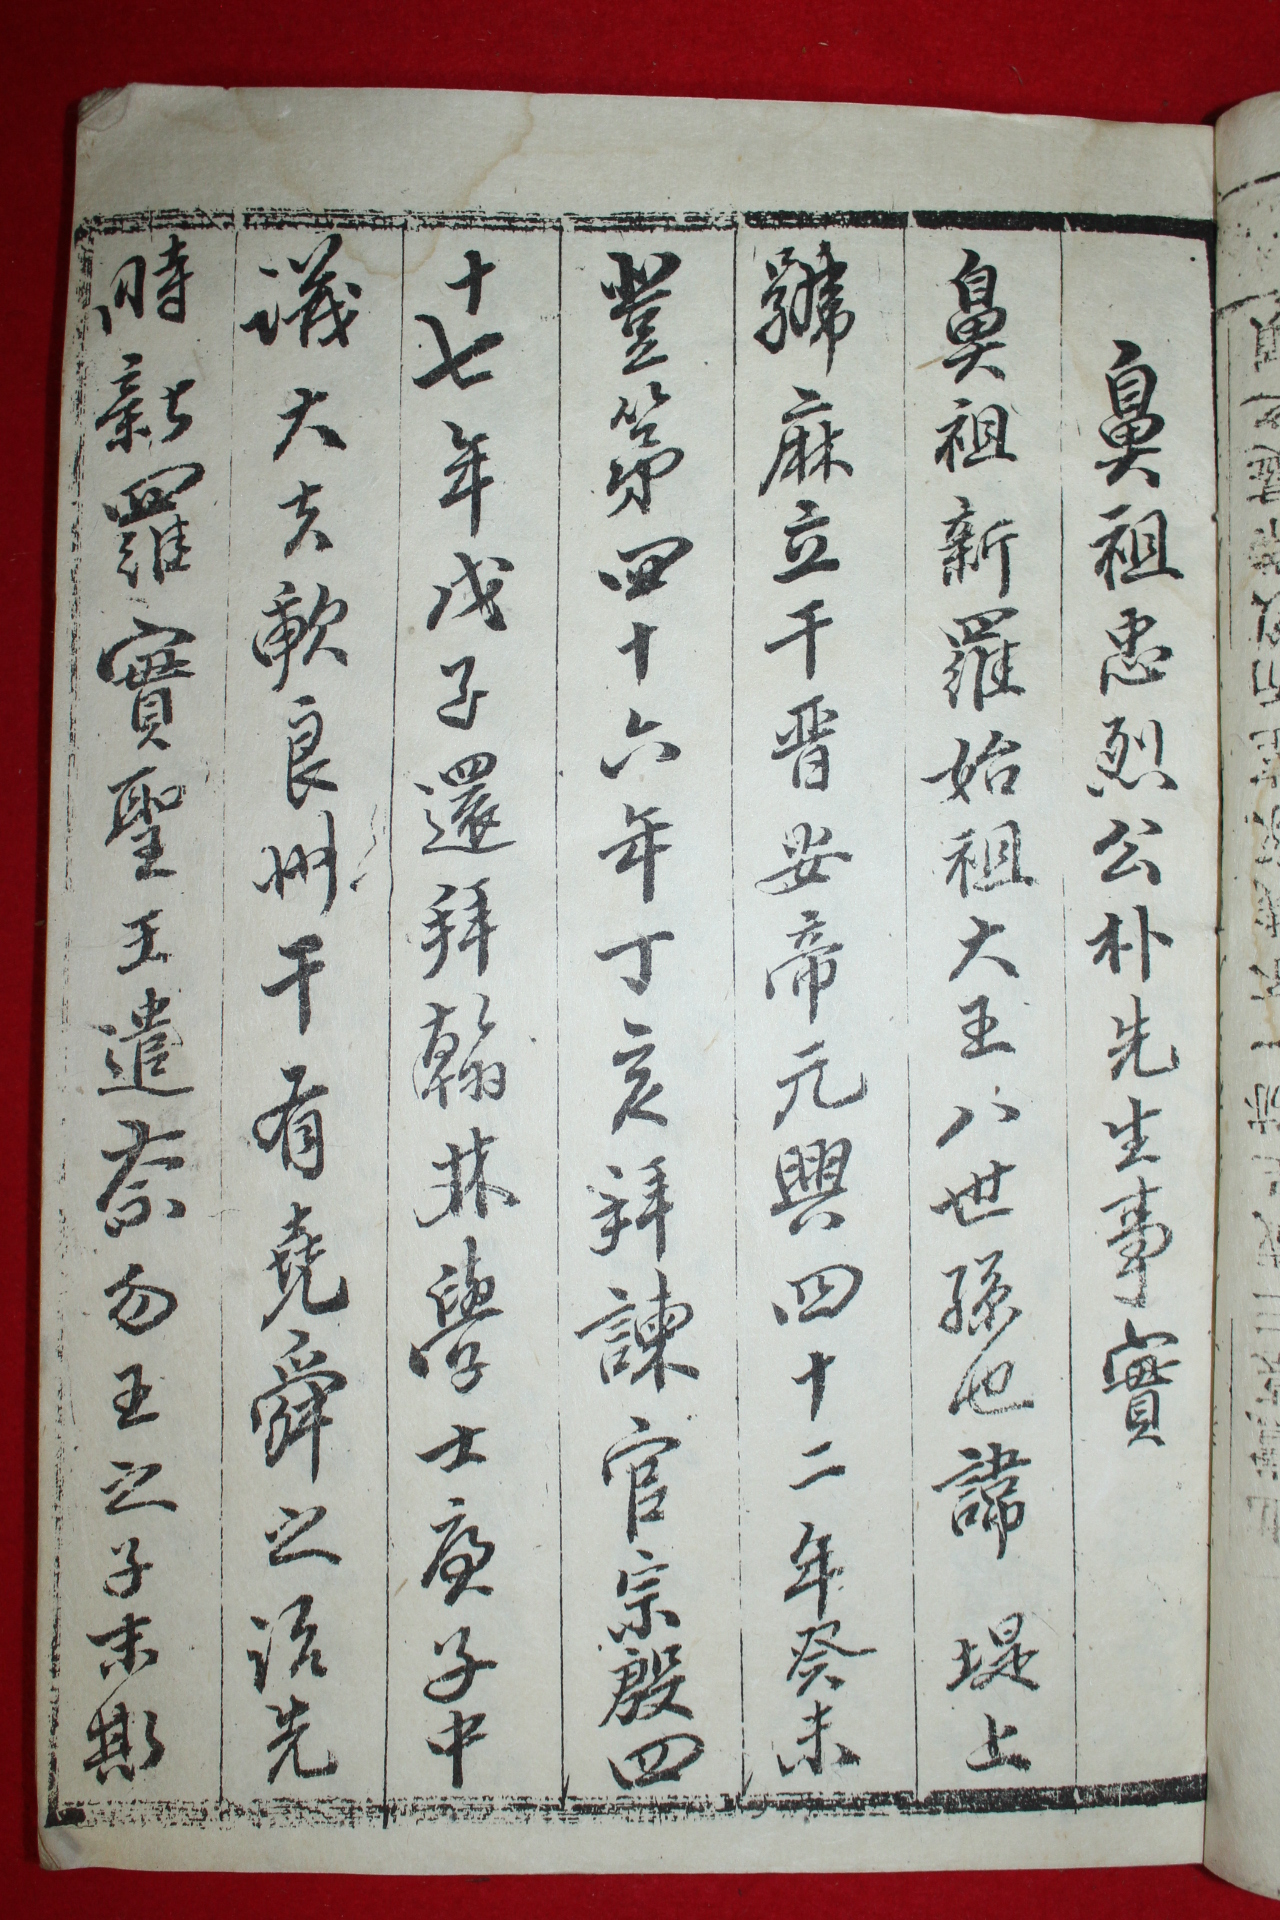 鼻祖忠烈公朴先生事實
鼻祖新羅始祖大王八世孫也諱 堤上
號麻立干晉安帝元興四十二年癸未
登第四十六年丁亥拜諫官宗殷四
十七年戊子還拜翰林學士庚子中
議大夫歃良州干有堯舜之治先
時新羅實聖王遣奈勿王之子末斯